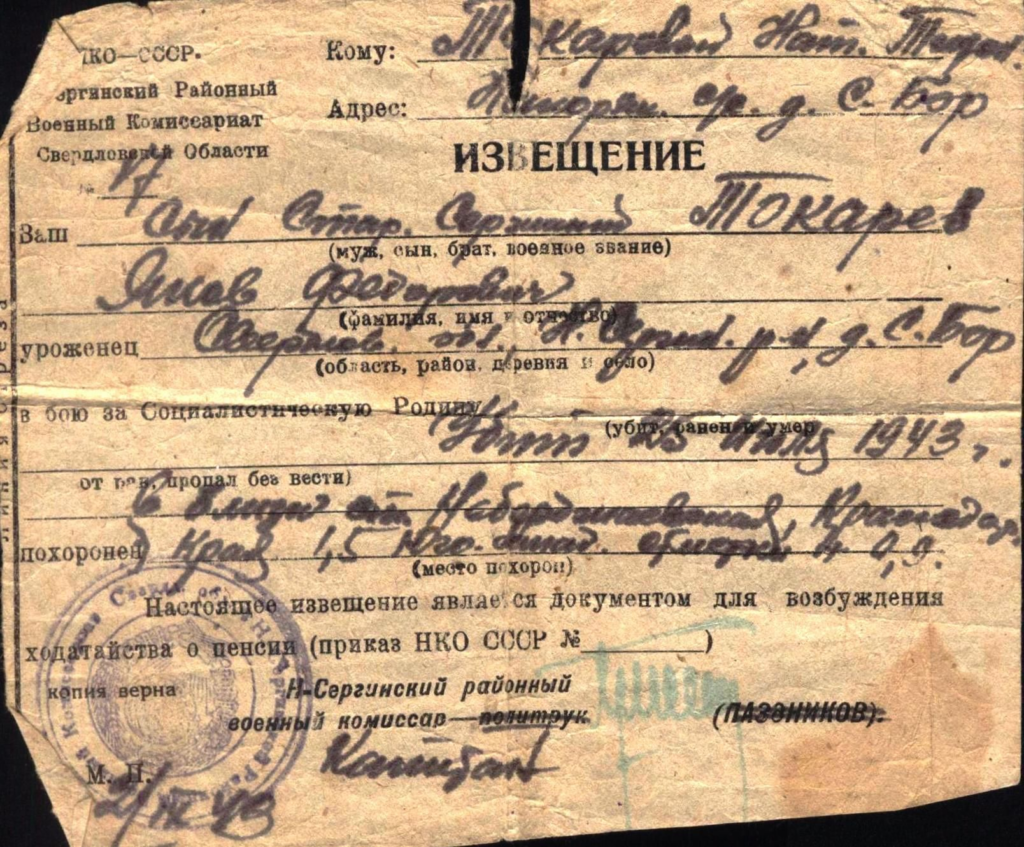 НКО—СССР.
Сергинский Районный
Военный Комиссариат
Свердловской Области
№ 17
Кому: Токаровой Нат.
Адрес: с/с. д. С. Бор
ИЗВЕЩЕНИЕ
Ваш сын Стар. Сержант Токарев
(муж, сын, брат, военное звание)
Яков Федорович
(фамилия, имя и отчество)
уроженец Свердлов. обл., Н. Сергин. р-н, д. С. Бор
(область, район, деревня и село)
в бою за Социалистическую Родину
(убит, ранен и умер
Убит 25 июля 1943 г.
от ран, пропал без вести)
похоронен Края 1,5 Юго-
(место похорон)
Настоящее извещение является документом для возбуждения
ходатайства о пенсии (приказ НКО СССР № )
копия верна
Н-Сергинский районный
военный комиссар—политрук (ПАЗЗНИКОВ).
Капитан
М. П.
2/IX 43
ЛИНИЯ ОТРЕЗА